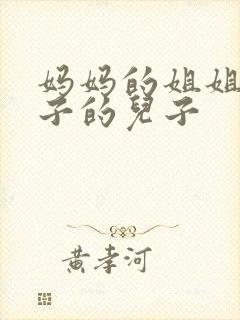 妈妈的姐姐
子的兒子
黄孝河